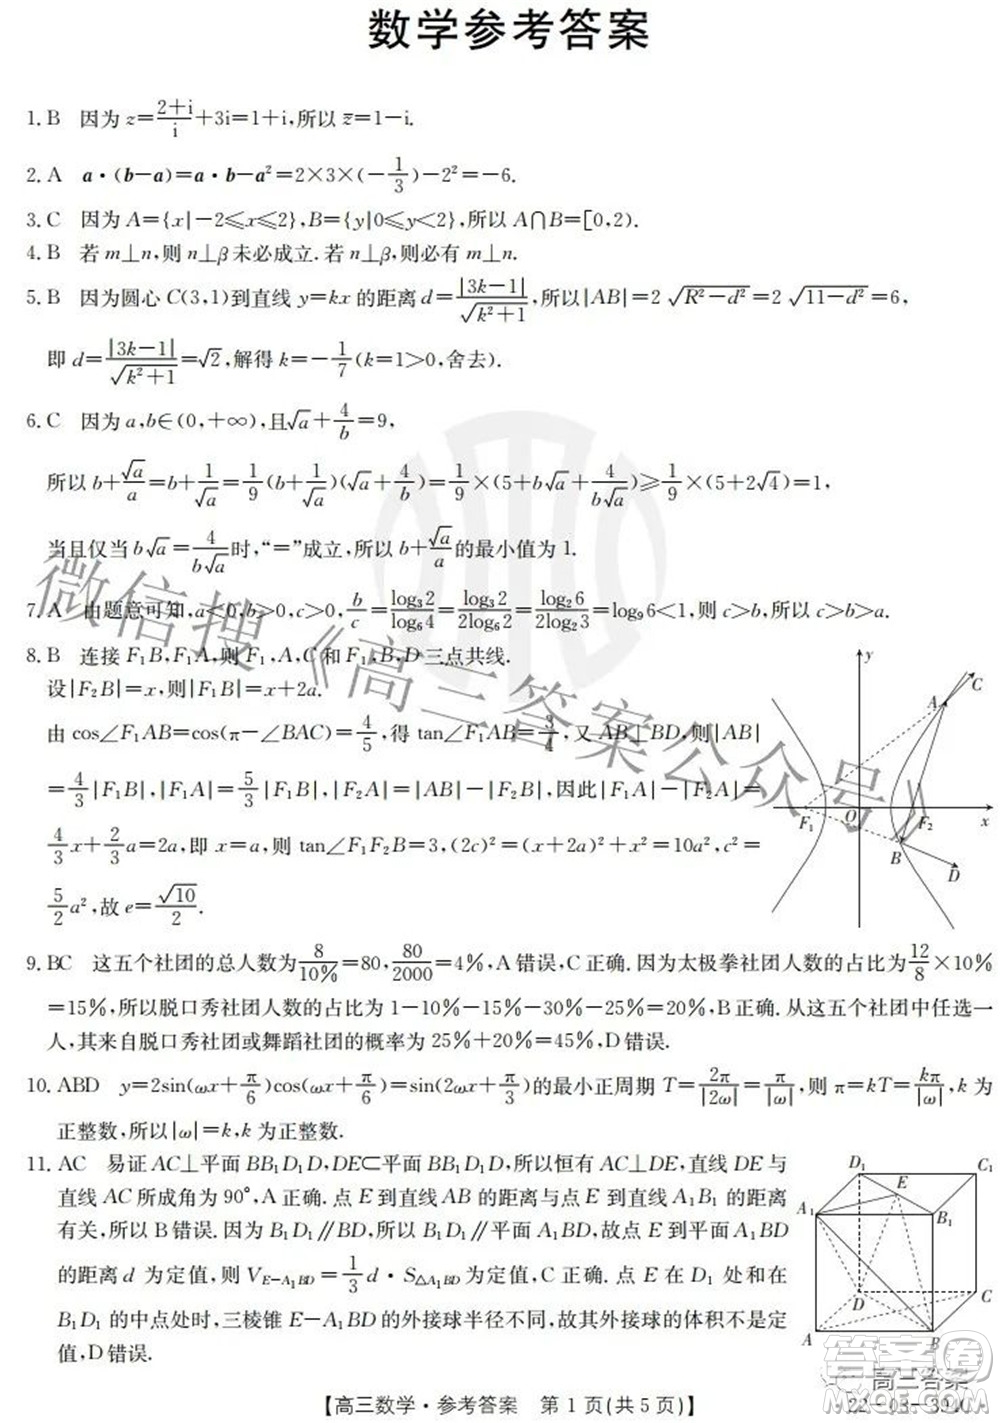 数学参考答案
1. B 因为 z=(2+i)/i+3i=1+i,所以 z̅=1-i.
2. A a·(b-a)=a·b-a²=2×3×(-1/3)-2²=-6.
3. C 因为 A={x|-2≤x≤2},B={y|0≤y<2},所以 A∩B=[0,2).
4. B 若 m⊥n,则 n⊥β 未必成立.若 n⊥β,则必有 m⊥n.
5. B 因为圆心 C(3,1)到直线 y=kx 的距离 d=|3k-1|/√(k²+1),所以|AB|=2√(R²-d²)=2√(11-d²)=6,
即 d=|3k-1|/√(k²+1)=√2,解得 k=-1/7(k=1>0,舍去).
6. C 因为 a,b∈(0,+∞),且√a+4/b=9,
所以 b+√a/a=b+1/√a=1/9(b+1/√a)(√a+4/b)=1/9×(5+b√a+4/(b√a))≥1/9×(5+2√4)=1,
当且仅当 b√a=4/(b√a)时,“=”成立,所以 b+√a/a的最小值为 1.
7. A 由题意可知,a<0,b>0,c>0,b/c=log₃2/log₆4=log₃2/(2log₆2)=log₂6/(2log₂3)=log₉6<1,则 c>b,所以 c>b>a.
8. B 连接 F₁B,F₁A,则 F₁,A,C 和 F₁,B,D 三点共线.
设|F₂B|=x,则|F₁B|=x+2a.
由 cos∠F₁AB=cos(π-∠BAC)=4/5,得 tan∠F₁AB=3/4,又 AB⊥BD,则|AB|
=4/3|F₁B|,|F₁A|=5/3|F₁B|,|F₂A|=|AB|-|F₂B|,因此|F₁A|-|F₂A|=
4/3x+2/3a=2a,即 x=a,则 tan∠F₁F₂B=3,(2c)²=(x+2a)²+x²=10a²,c²=
5/2a²,故 e=√10/2.
y
A
C
F₁
O
F₂
x
B
D
9. BC 这五个社团的总人数为8/10%=80,80/2000=4%,A 错误,C 正确.因为太极拳社团人数的占比为12/8×10%
=15%,所以脱口秀社团人数的占比为 1-10%-15%-30%-25%=20%,B 正确.从这五个社团中任选一
人,其来自脱口秀社团或舞蹈社团的概率为 25%+20%=45%,D 错误.
10. ABD y=2sin(ωx+π/6)cos(ωx+π/6)=sin(2ωx+π/3)的最小正周期 T=2π/|2ω|=π/|ω|,则 π=kT=kπ/|ω|,k 为
正整数,所以|ω|=k,k 为正整数.
11. AC 易证 AC⊥平面 BB₁D₁D,DE⊂平面 BB₁D₁D,所以恒有 AC⊥DE,直线 DE 与
直线 AC 所成角为 90°,A 正确.点 E 到直线 AB 的距离与点 E 到直线 A₁B₁ 的距离
有关,所以 B 错误.因为 B₁D₁∥BD,所以 B₁D₁∥平面 A₁BD,故点 E 到平面 A₁BD
的距离 d 为定值,则 V_{E-A₁BD}=1/3d·S_{△A₁BD}为定值,C 正确.点 E 在 D₁ 处和在
B₁D₁ 的中点处时,三棱锥 E-A₁BD 的外接球半径不同,故其外接球的表面积不是定
值,D 错误.
D₁
C₁
E
A₁
B₁
D
C
A
B
【高三数学·参考答案 第 1 页(共 5 页)】
微信搜《高三答案公众号》
高三答案